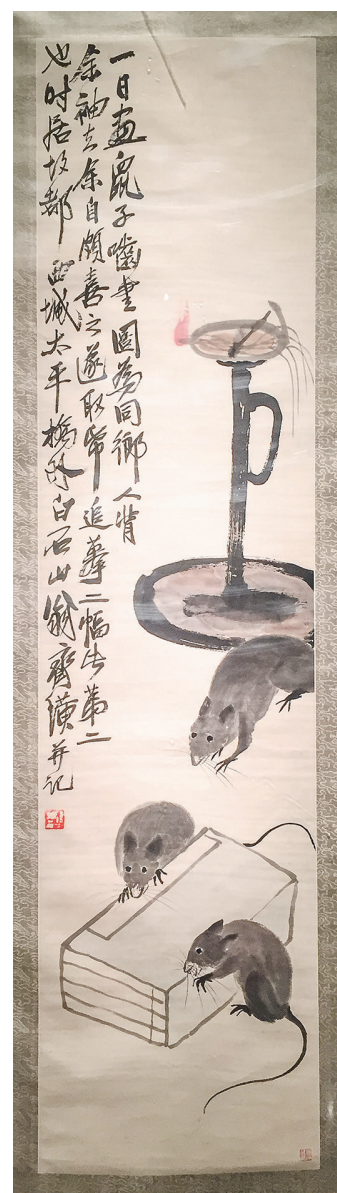 一日画鼠子嚙书图为同鄉人背
余袖去余自頗喜之遂取帋追摹二幅此弟二
也时居故都西城太平橋外白石山翁齊璜并记